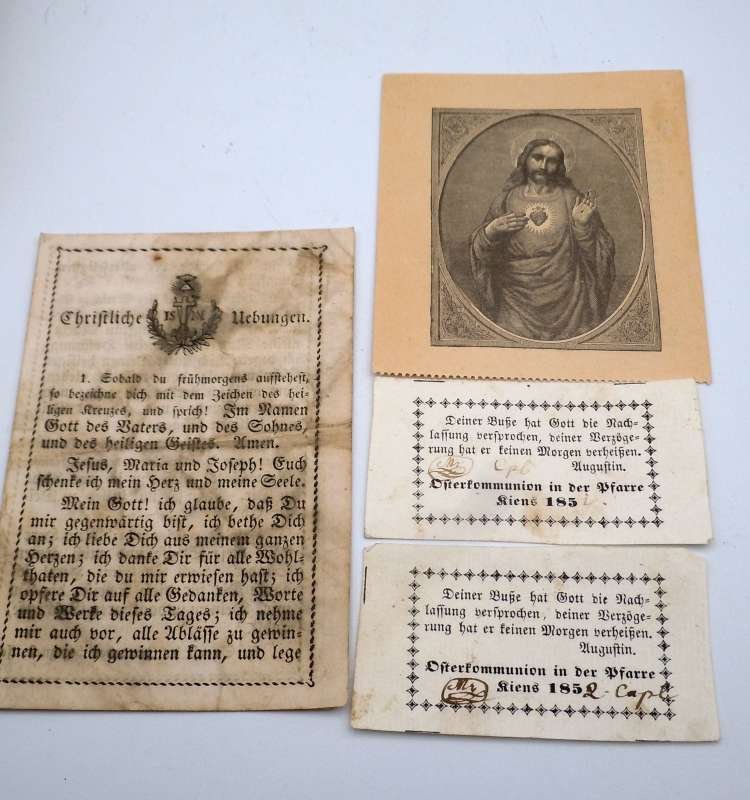 Christliche IS M Uebungen.
1. Sobald du frühmorgens aufstehest,
so bezeichne dich mit dem Zeichen des hei-
ligen Kreuzes, und sprich! Im Namen
Gott des Vaters, und des Sohnes,
und des heiligen Geistes. Amen.
Jesus, Maria und Joseph! Euch
schenke ich mein Herz und meine Seele.
Mein Gott! ich glaube, daß Du
mir gegenwärtig bist, ich bethe Dich
an; ich liebe Dich aus meinem ganzen
Herzen; ich danke Dir für alle Wohl-
thaten, die du mir erwiesen hast; ich
opfere Dir auf alle Gedanken, Worte
und Werke dieses Tages; ich nehme
mir auch vor, alle Ablässe zu gewin-
nen, die ich gewinnen kann, und lege
Deiner Buße hat Gott die Nach-
lassung versprochen, deiner Verzöge-
rung hat er keinen Morgen verheißen.
Augustin.
Osterkommunion in der Pfarre
Kiens 185
Deiner Buße hat Gott die Nach-
lassung versprochen, deiner Verzöge-
rung hat er keinen Morgen verheißen.
Augustin.
Osterkommunion in der Pfarre
Kiens 1852 - Capl